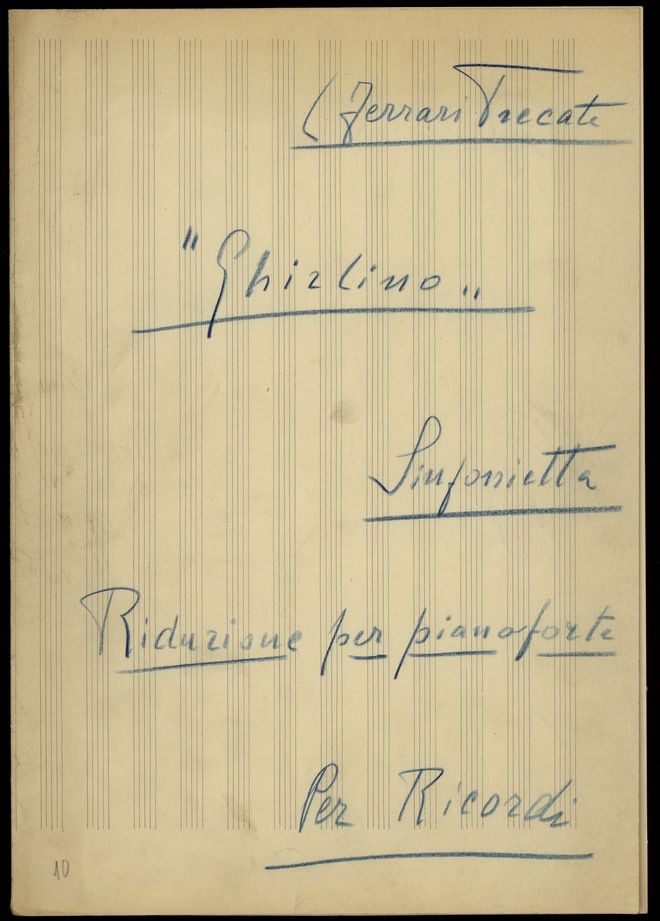 L Ferrari Trecate
"Ghirlino"
Sinfonietta
Riduzione per pianoforte
Per Ricordi
10